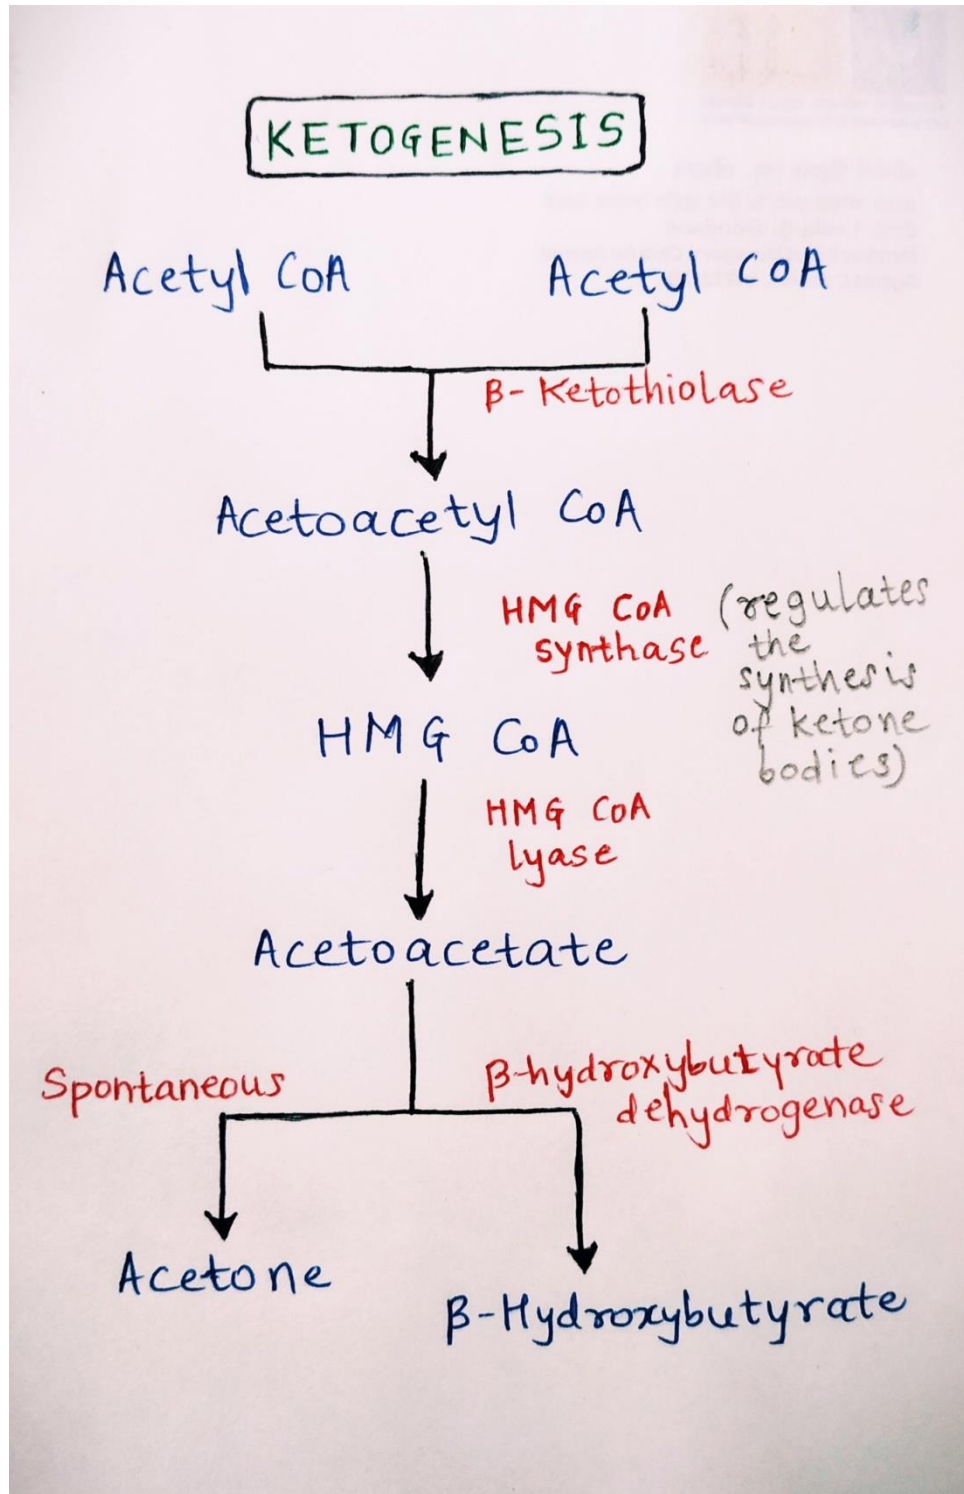 KETOGENESIS
Acetyl CoA Acetyl CoA
β-Ketothiolase
Acetoacetyl CoA
HMG CoA (regulates
synthase the
synthesis
of ketone
bodies)
HMG CoA
HMG CoA
lyase
Acetoacetate
Spontaneous
β-hydroxybutyrate
dehydrogenase
Acetone
β-Hydroxybutyrate